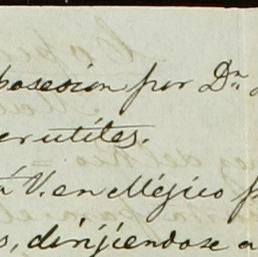 posesion por Dn
erutites.
V. en Méjico
s, dirijiendose a